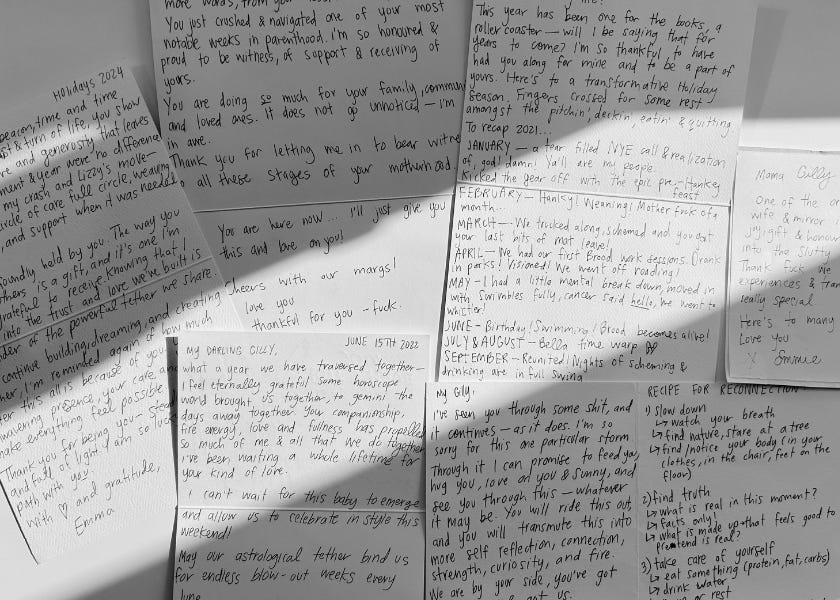 more words, from your
You just crushed & navigated one of your most
notable weeks in parenthood. I'm so honoured &
proud to be witness, of support & receiving of
yours.
You are doing so much for your family, commun
and loved ones. It does not go unnoticed — I'm
in awe.
Thank you for letting me in to bear witne
all these stages of your motherhood
This year has been one for the books, a
roller coaster — will I be saying that for
years to come? I'm so thankful to have
had you along for mine and to be a part of
yours. Here's to a transformative Holiday
Season. Fingers crossed for some rest
amongst the pitchin', deckin', eatin' & quitting.
To recap 2021...
JANUARY — a tear filled NYE call & realization
of, god! damn! Ya'll are my people.
Kicked the year off with the epic pre-Hankey
feast
FEBRUARY — Hanky! Weaning! Mother fuck of a
month...
MARCH — We trucked along, schemed and you got
your last bits of mat leave!
APRIL — We had our first Brood work sessions. Drank
in parks! Visioned! We went off roading!
MAY — I had a little mental break down, moved in
with fully, cancer said hello, we went to
whistler!
JUNE — Birthday! Swimming! Brood becomes alive!
JULY & AUGUST — Bella time warp
SEPTEMBER — Reunited! Nights of scheming &
drinking are in full swing
Holidays 2024
beacon, time and time
& turn of life, you show
and generosity that leaves
& year were no difference
my crash and Lizzy's move —
circle of care full circle, weaving
and support when it was needed
held by you. The way you
others is a gift, and it's one I'm
grateful to receive. Knowing that I
into the trust and love we've built is
of the powerful tether we share.
continue building, dreaming and creating
I'm reminded again of how much
this all is because of you
presence, your care and
make everything feel possible.
Thank you for being you — stead
and full of light. I am so luck
path with you.
With ♡ and gratitude,
Emma
You are here now... I'll just give you
this and love on you!
Cheers with our margs!
love you
thankful for you — fuck.
Mama Gilly
One of the or
wife & mirror
joy, gift & honour
into the slutty
Thank fuck we
experiences & tran
really special
Here's to many
Love you
X Emmie
JUNE 15TH 2022
MY DARLING GILLY,
what a year we have traversed together —
I feel eternally grateful some horoscope
world brought us together, to gemini the
days away together. Your companionship,
fire energy, love and fullness has propelled
so much of me & all that we do together
I've been waiting a whole lifetime for
your kind of love.
I can't wait for this baby to emerge
and allow us to celebrate in style this
weekend!
May our astrological tether bind us
for endless blow-out weeks every
June
My Gilly,
I've seen you through some shit, and
it continues — as it does. I'm so
sorry for this one particular storm
Through it I can promise to feed you,
hug you, love on you & Sunny, and
see you through this — whatever
it may be. You will ride this out
and you will transmute this into
more self reflection, connection,
strength, curiosity, and fire.
We are by your side, you've got
got us.
RECIPE FOR RECONNECTION
1) slow down
↳ watch your breath
↳ find nature, stare at a tree
↳ find/notice your body (in your
clothes, in the chair, feet on the
floor)
2) find truth
↳ what is real in this moment?
↳ facts only!
↳ what is made up that feels good to
pretend is real?
3) take care of yourself
↳ eat something (protein, fat, carbs)
↳ drink water
or rest